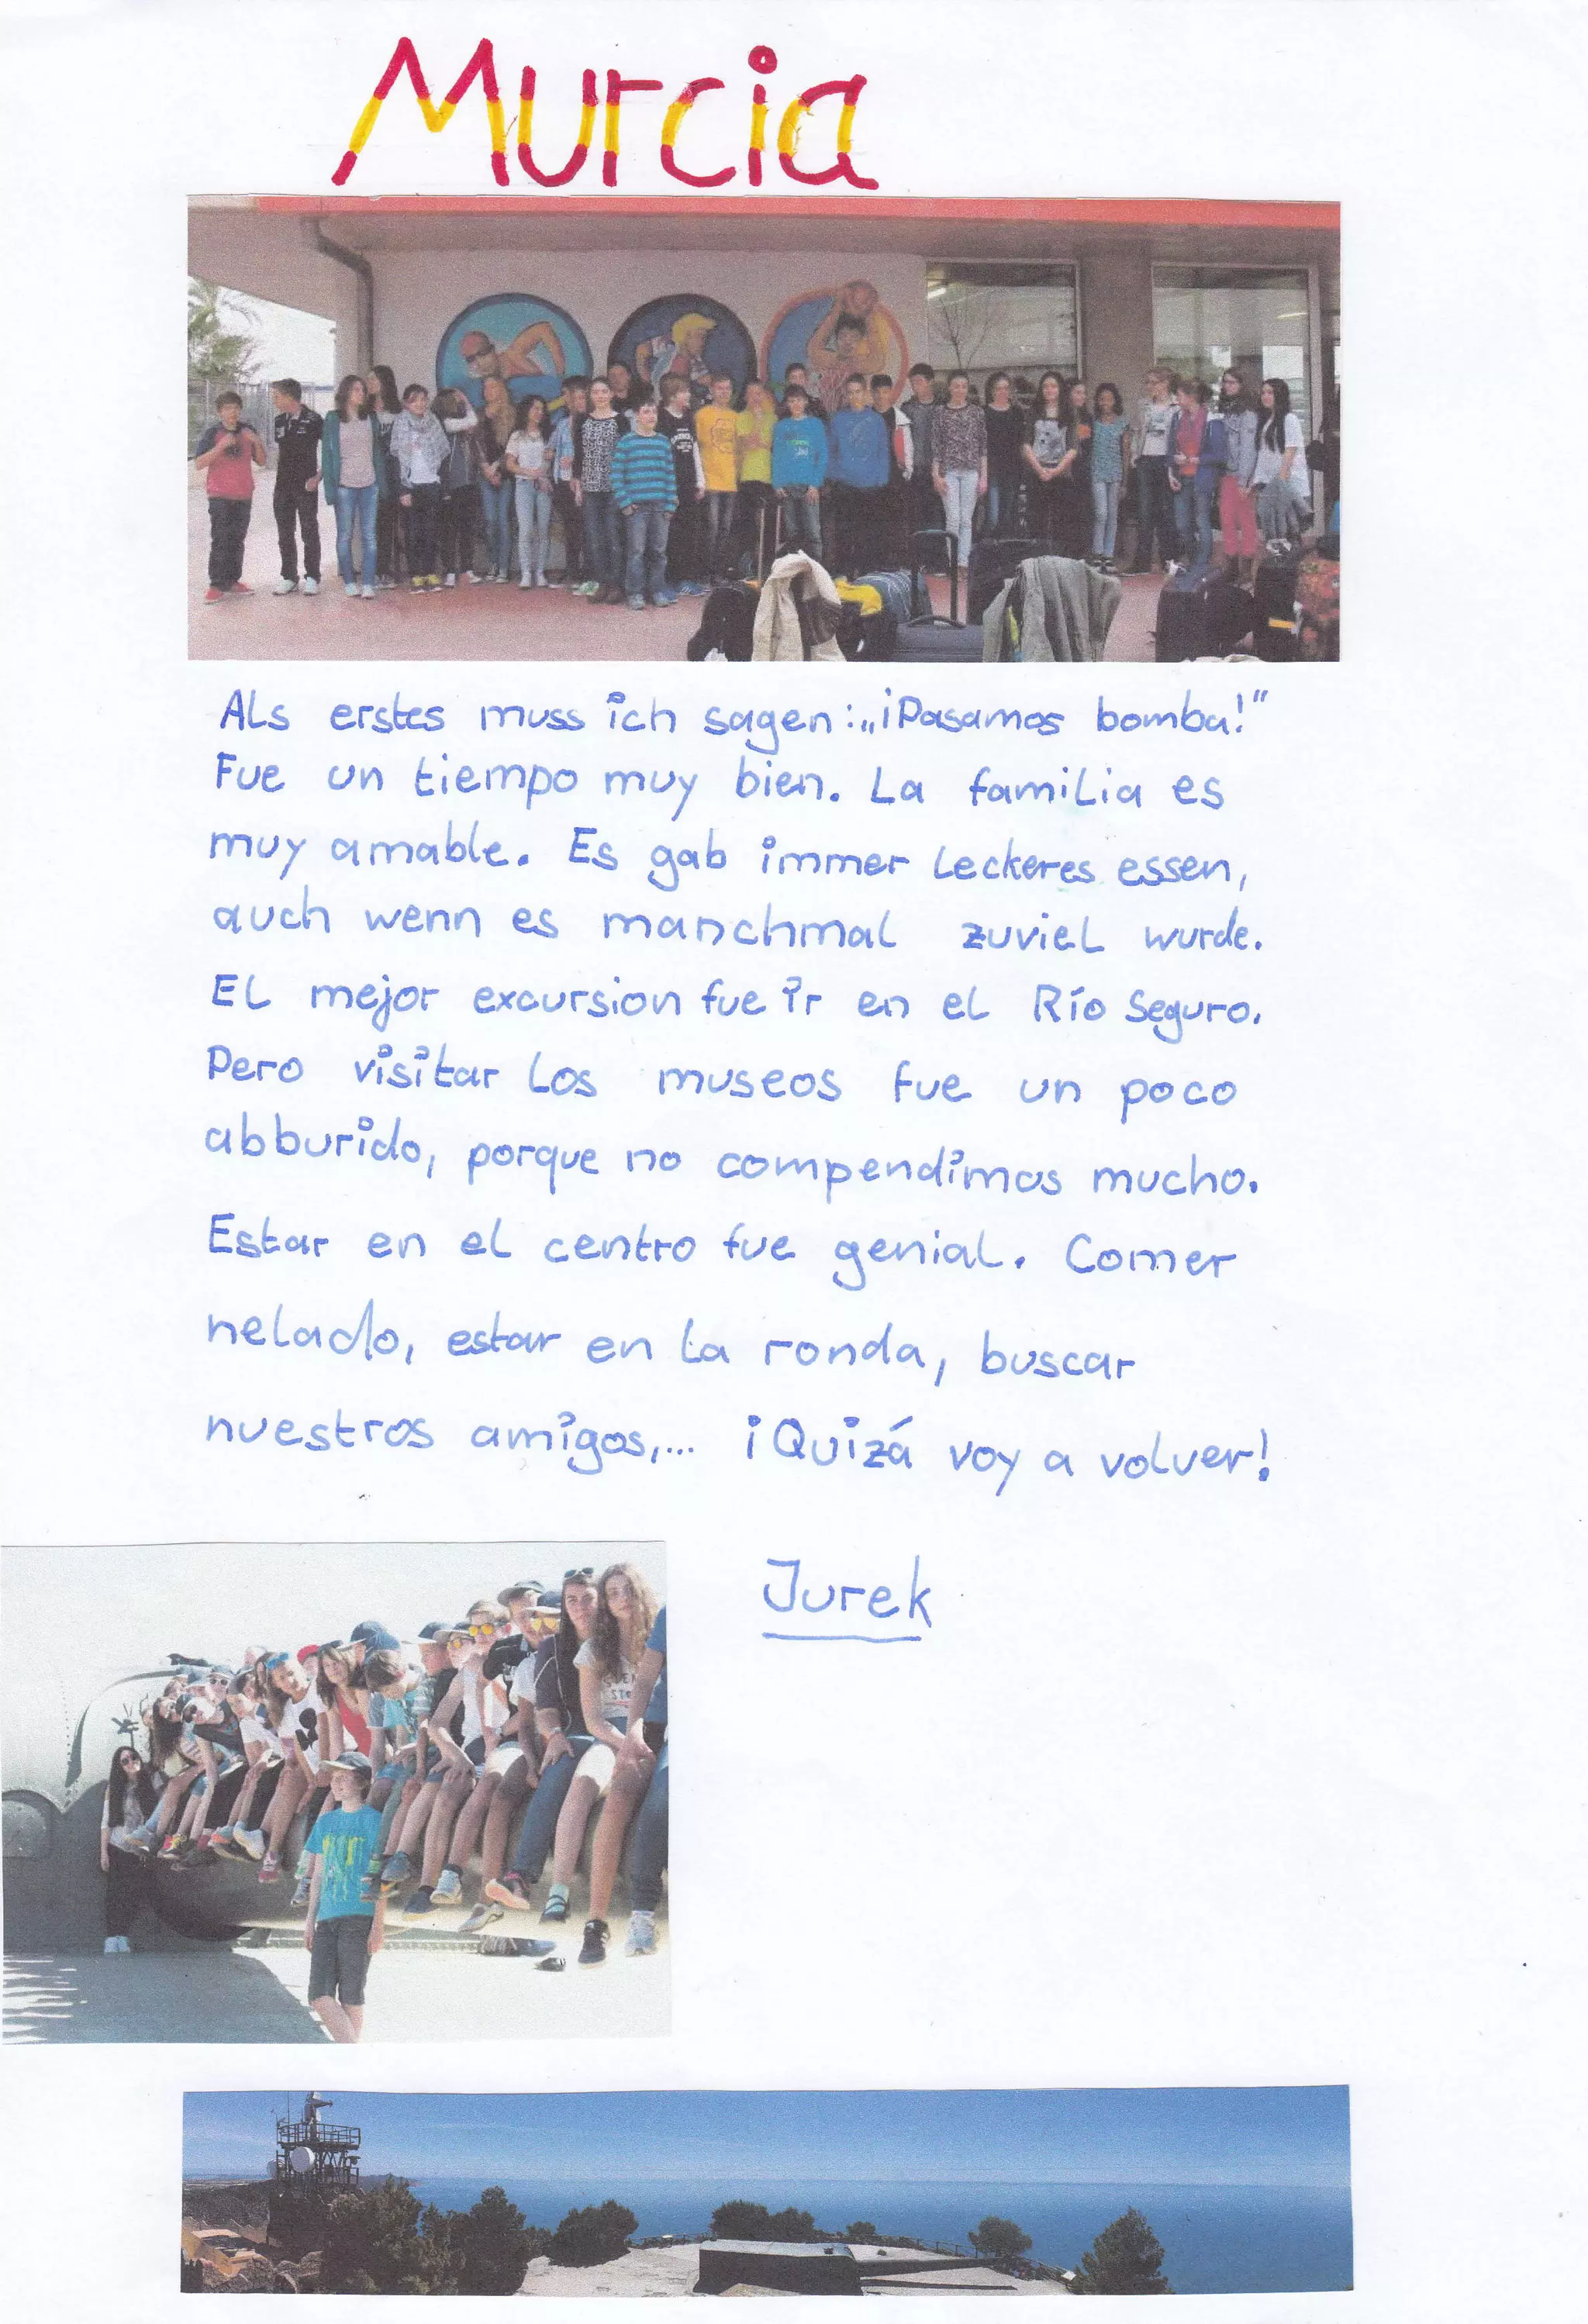 Murcia
Als erstes muss ich sagen: „¡Pasamos bomba!“
Fue un tiempo muy bien. La familia es
muy amable. Es gab immer leckeres essen,
auch wenn es manchmal zuviel wurde.
El mejor excursion fue ir en el Río Seguro.
Pero visitar los museos fue un poco
abburido, porque no compendimos mucho.
Estar en el centro fue genial. Comer
helado, estar en la ronda, buscar
nuestros amigos,... ¡Quizá voy a volver!
Jurek